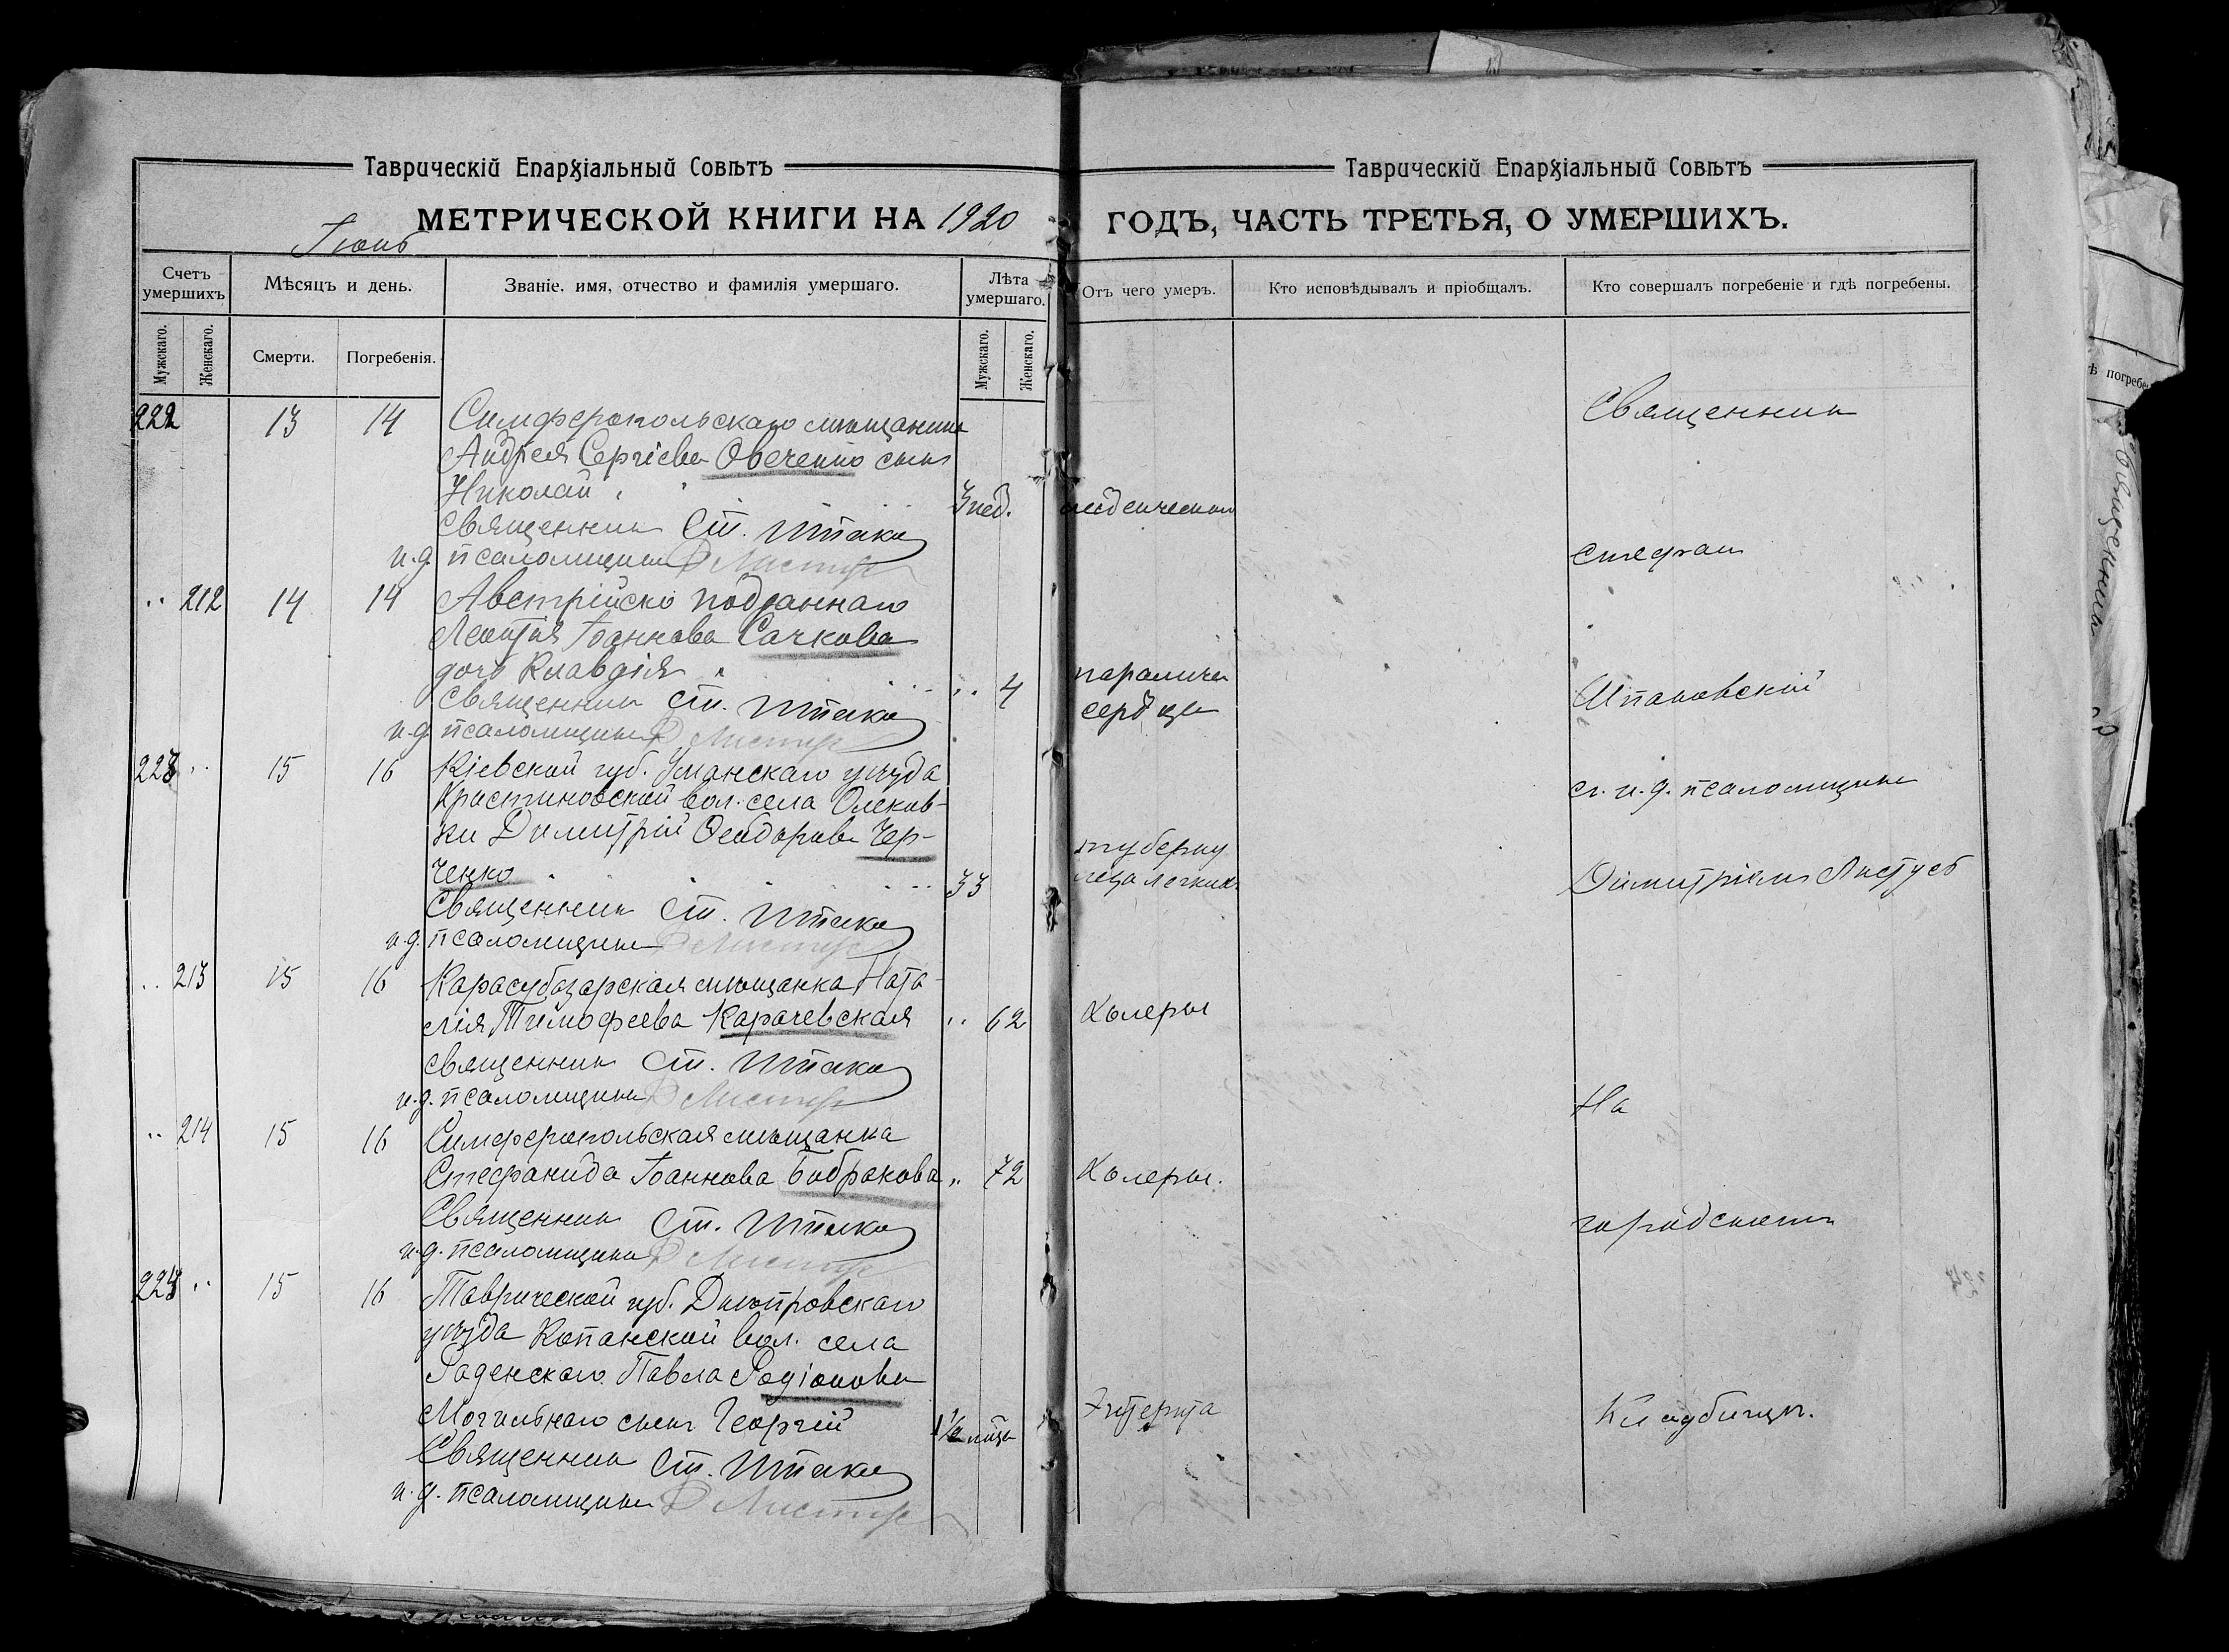 Таврическій Епархіальный Совѣтъ
МЕТРИЧЕСКОЙ КНИГИ НА 1920
Іюнь
Счетъ умершихъ
Мѣсяцъ и день.
Званіе, имя, отчество и фамилія умершаго.
Лѣта умершаго.
Мужскаго.
Женскаго.
Смерти.
Погребенія.
Мужскаго.
Женскаго.
222 13 14 Симферопольскаго мѣщанина
Андрея Сергіева Овеченко сынъ
Николай 3 нед.
Священникъ Ст. Шпака
и.д. псаломщика Д Листус
212 14 14 Австрійско подданнаго
Леонтія Іоаннова Сачкова
дочь Клавдія 4
Священникъ Ст. Шпака
и.д. псаломщика Д Листус
223 15 16 Кіевской губ. Уманскаго уѣзда
Христиновской вол. села
ки Димитрій Ѳеодоровъ Чер-
ченко 33
Священникъ Ст. Шпака
и.д. псаломщика Д Листус
213 15 16 Карасубазарская мѣщанка Ната-
лія Тимофеева Карачевская 62
Священникъ Ст. Шпака
и.д. псаломщика Д Листус
214 15 16 Симферопольская мѣщанка
Стефанида Іоаннова Бобракова 72
Священникъ Ст. Шпака
и.д. псаломщика Д Листус
224 15 16 Таврической губ. Днѣпровскаго
уѣзда Копанской вол. села
Раденскаго Павла Родіонова
Могильнаго сынъ Георгій 1½ мѣсц
Священникъ Ст. Шпака
и.д. псаломщика Д Листус
Таврическій Епархіальный Совѣтъ
ГОДЪ, ЧАСТЬ ТРЕТЬЯ, О УМЕРШИХЪ.
Отъ чего умеръ.
Кто исповѣдывалъ и пріобщалъ.
Кто совершалъ погребеніе и гдѣ погребены.
Священникъ
младенческой
Стефанъ
паралича
сердца
Шпаковскій
съ и.д. псаломщика
туберку
леза легкихъ
Димитріемъ Листусъ
Холеры
На
Холеры.
городскомъ
Энтерита
Кладбищѣ.